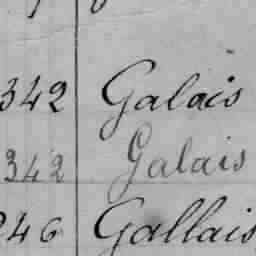 342 Galais
342 Galais
246 Gallais